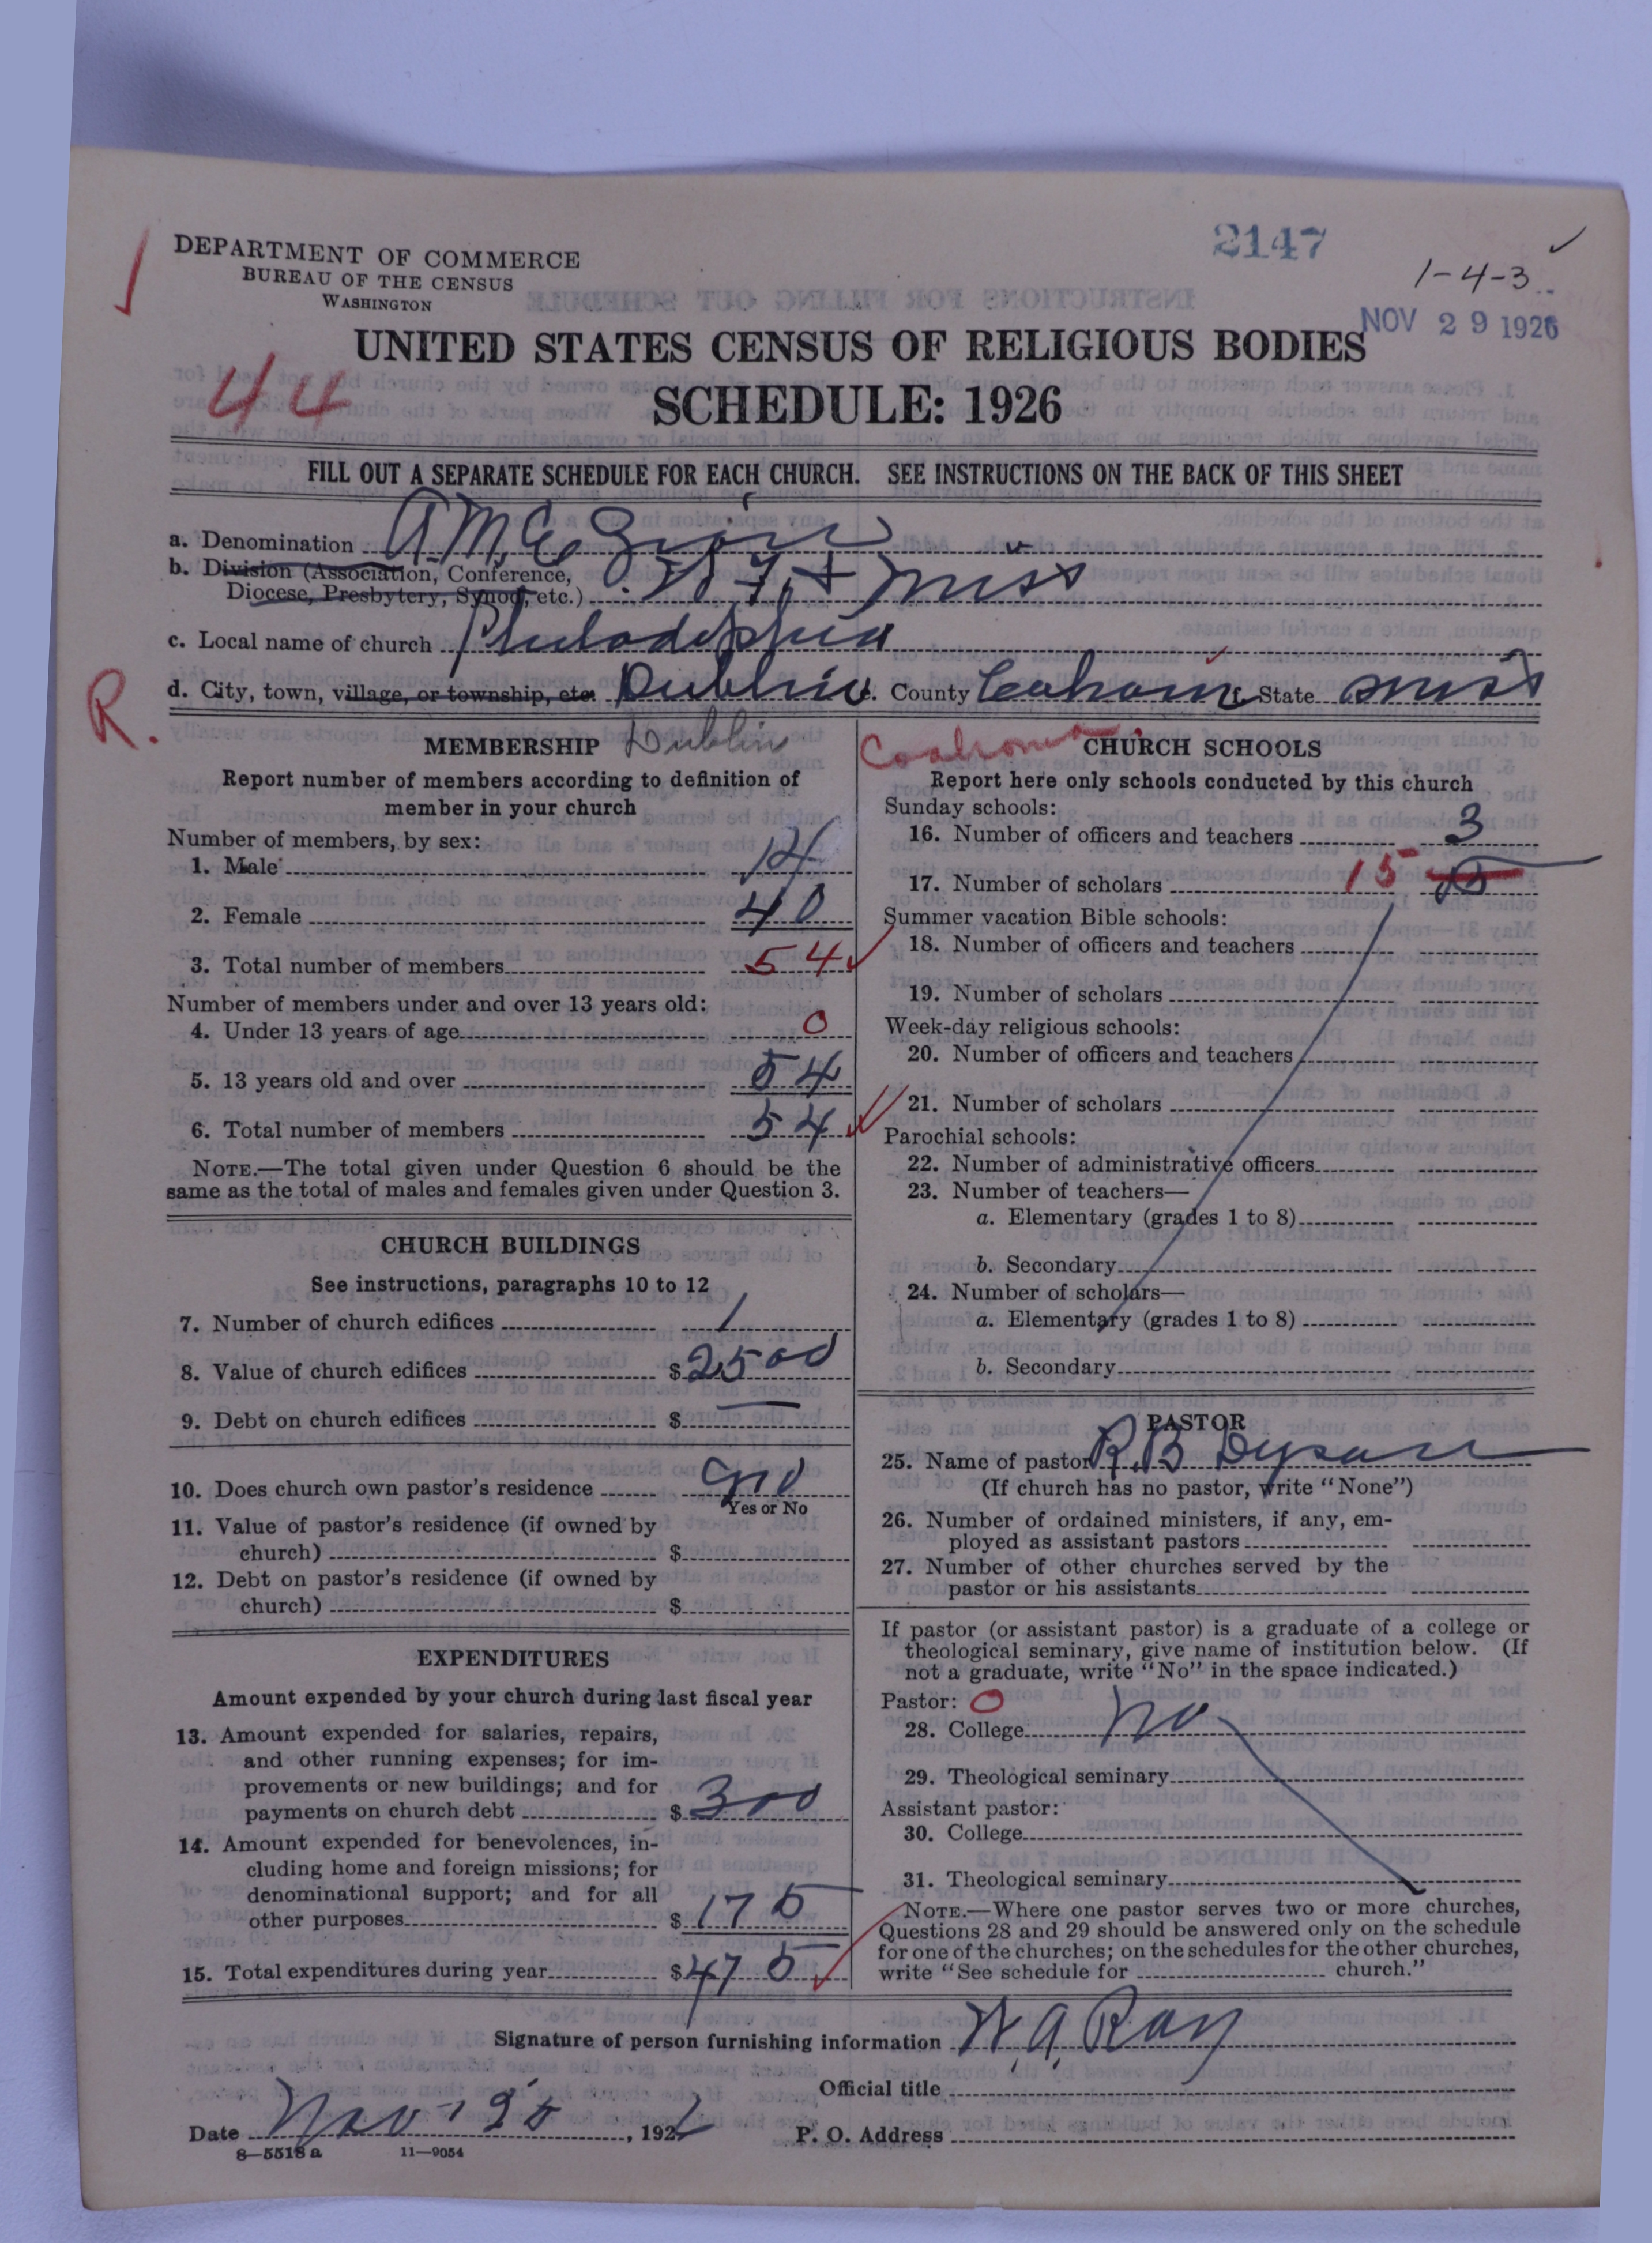 DEPARTMENT OF COMMERCE
BUREAU OF THE CENSUS
WASHINGTON
2147
1-4-3
NOV 29 1926
UNITED STATES CENSUS OF RELIGIOUS BODIES
44
SCHEDULE: 1926
FILL OUT A SEPARATE SCHEDULE FOR EACH CHURCH. SEE INSTRUCTIONS ON THE BACK OF THIS SHEET
a. Denomination A.M.E. Zion
b. Division (Association, Conference,
Diocese, Presbytery, Synod, etc.) Miss
c. Local name of church Philadelphia
R.
d. City, town, village, or township, etc. Dublin e. County Coahoma f. State Miss
MEMBERSHIP Dublin
Report number of members according to definition of
member in your church
Number of members, by sex:
1. Male 14
2. Female 40
3. Total number of members 54
Number of members under and over 13 years old:
4. Under 13 years of age 0
5. 13 years old and over 54
6. Total number of members 54
NOTE.—The total given under Question 6 should be the
same as the total of males and females given under Question 3.
CHURCH BUILDINGS
See instructions, paragraphs 10 to 12
7. Number of church edifices 1
8. Value of church edifices $2500
9. Debt on church edifices $
10. Does church own pastor's residence no
Yes or No
11. Value of pastor's residence (if owned by
church) $
12. Debt on pastor's residence (if owned by
church) $
EXPENDITURES
Amount expended by your church during last fiscal year
13. Amount expended for salaries, repairs,
and other running expenses; for im-
provements or new buildings; and for
payments on church debt $300
14. Amount expended for benevolences, in-
cluding home and foreign missions; for
denominational support; and for all
other purposes $175
15. Total expenditures during year $475
Coahoma CHURCH SCHOOLS
Report here only schools conducted by this church
Sunday schools:
16. Number of officers and teachers 3
17. Number of scholars 15
Summer vacation Bible schools:
18. Number of officers and teachers
19. Number of scholars
Week-day religious schools:
20. Number of officers and teachers
21. Number of scholars
Parochial schools:
22. Number of administrative officers
23. Number of teachers—
a. Elementary (grades 1 to 8)
b. Secondary
24. Number of scholars—
a. Elementary (grades 1 to 8)
b. Secondary
PASTOR
25. Name of pastor R.B Dyson
(If church has no pastor, write "None")
26. Number of ordained ministers, if any, em-
ployed as assistant pastors
27. Number of other churches served by the
pastor or his assistants
If pastor (or assistant pastor) is a graduate of a college or
theological seminary, give name of institution below. (If
not a graduate, write "No" in the space indicated.)
Pastor: 0
28. College no
29. Theological seminary
Assistant pastor:
30. College
31. Theological seminary
NOTE.—Where one pastor serves two or more churches,
Questions 28 and 29 should be answered only on the schedule
for one of the churches; on the schedules for the other churches,
write "See schedule for church."
Signature of person furnishing information W.A. Ray
Official title
Date Nov , 192
P. O. Address
8—5518 a 11—9054